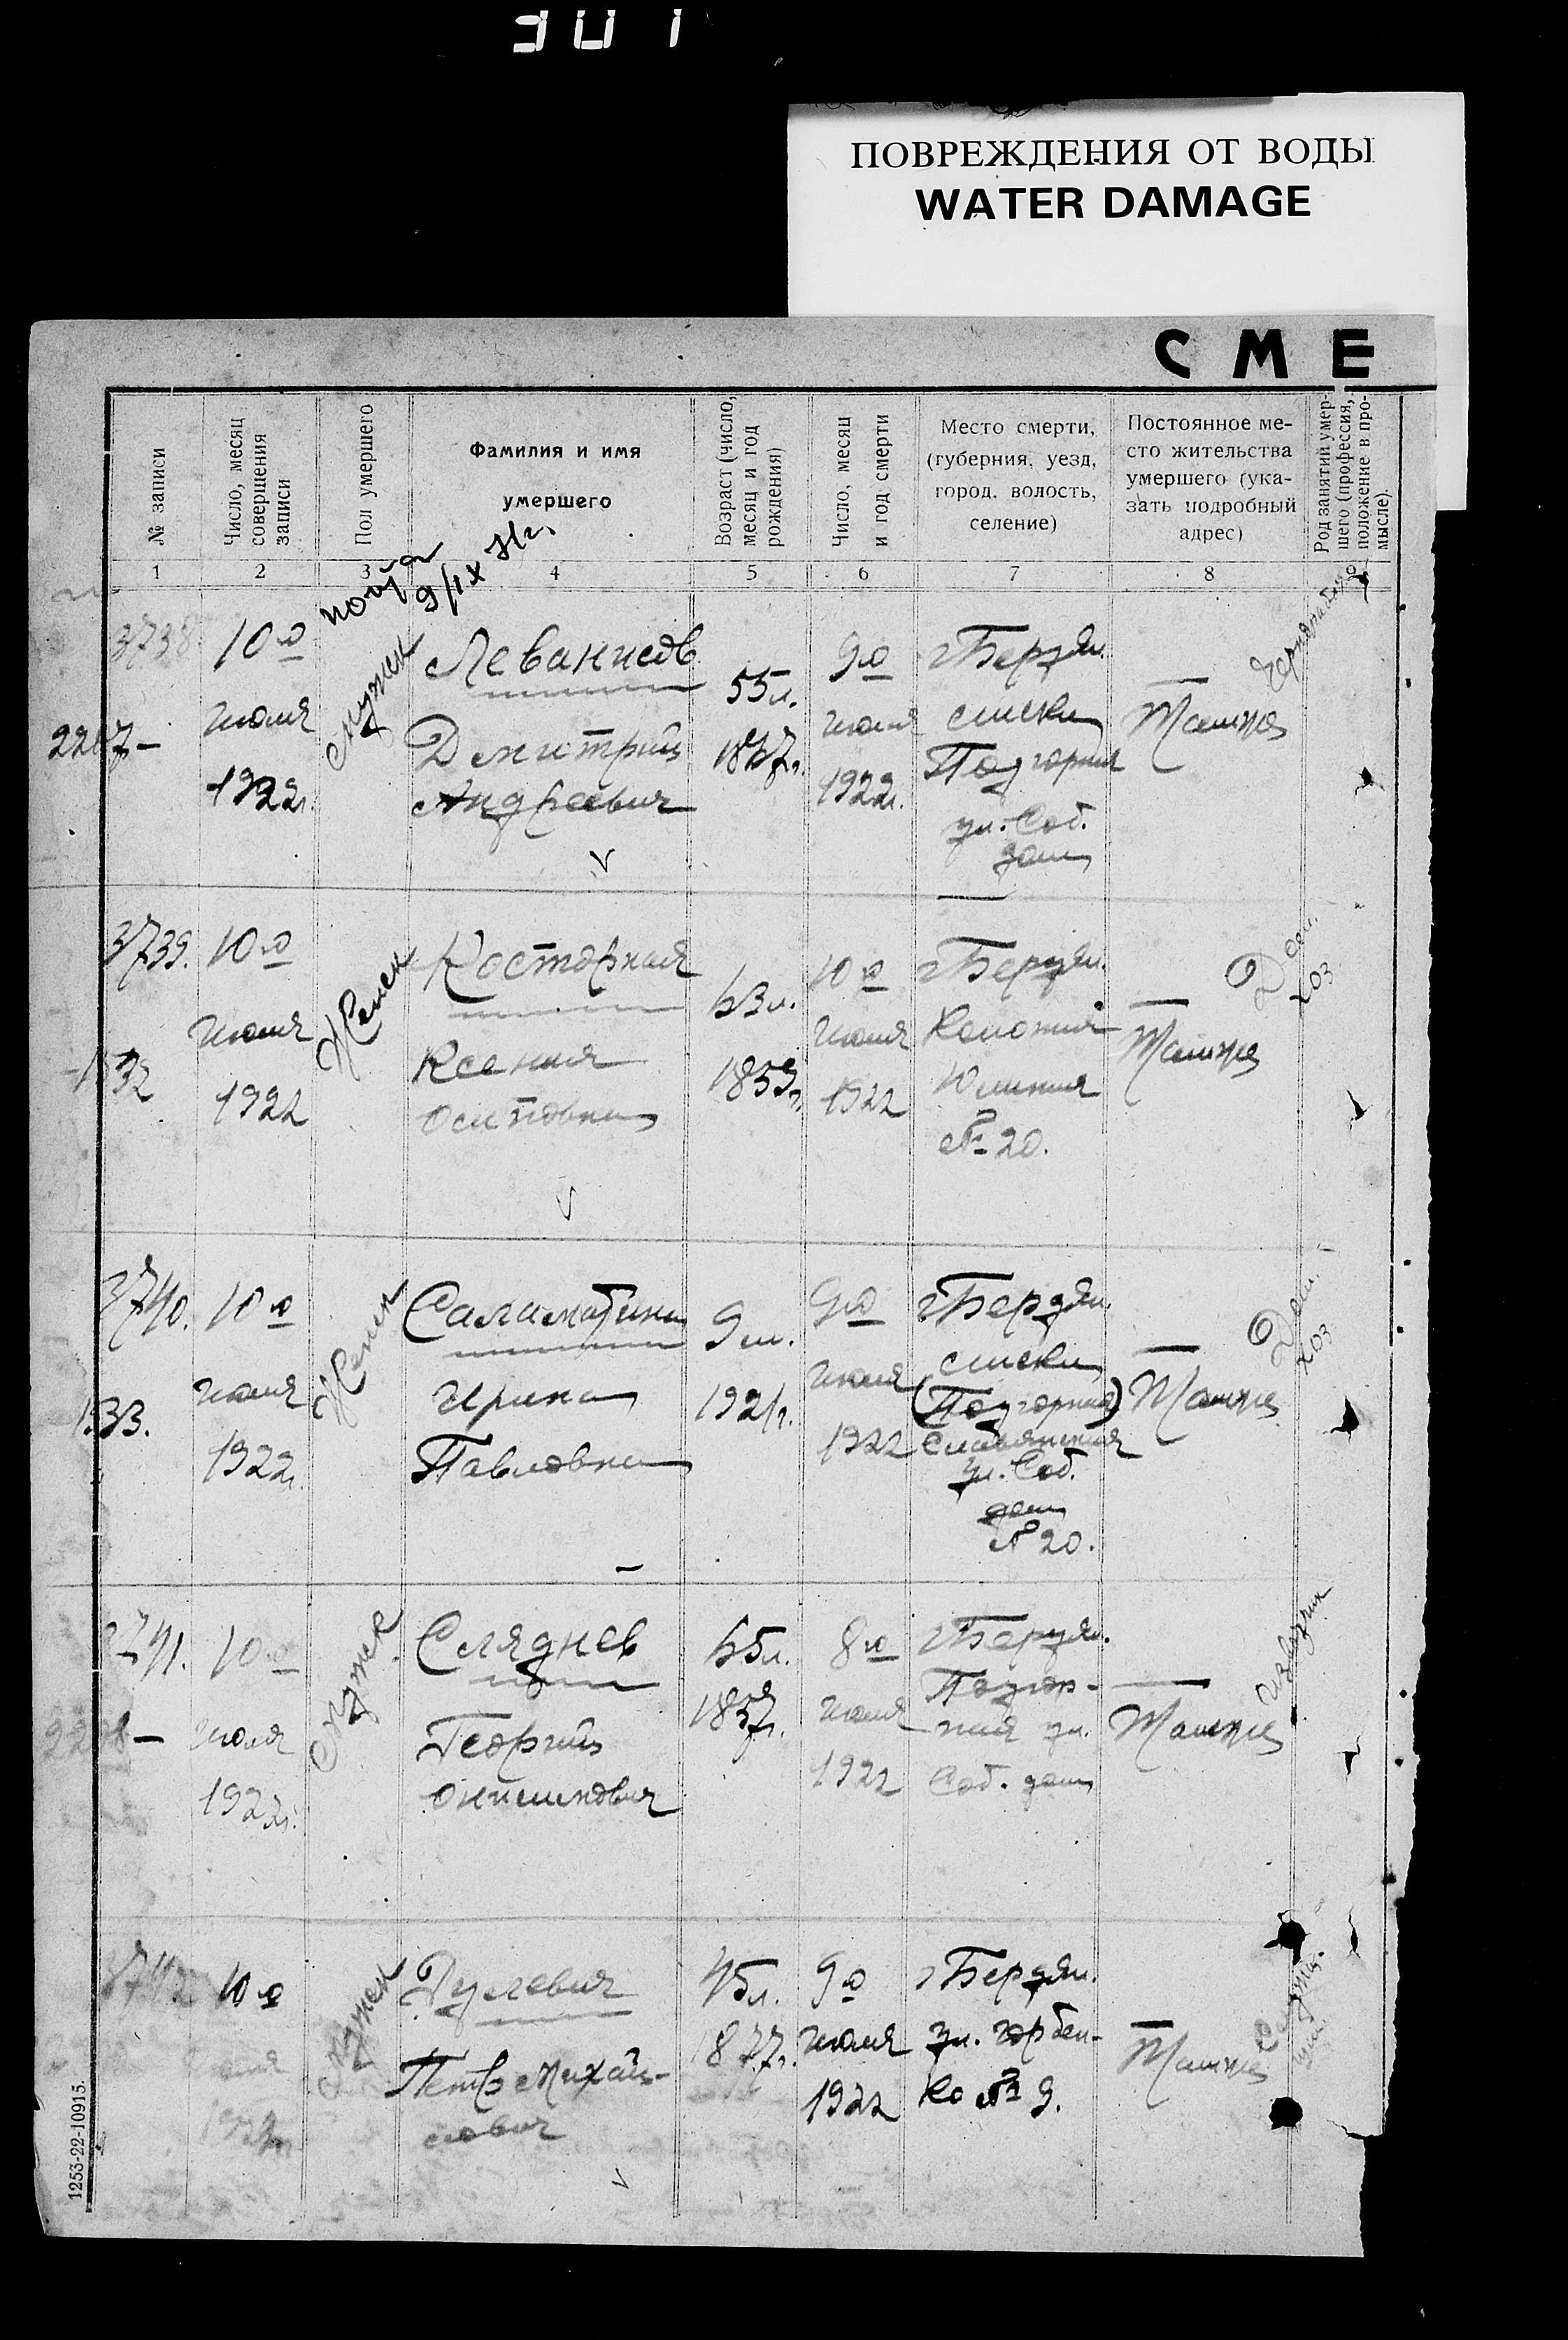 ПОВРЕЖДЕНИЯ ОТ ВОДЫ
WATER DAMAGE
С М Е
№ записи
Число, месяц
совершения
записи
Пол умершего
Фамилия и имя
умершего
Возраст (число,
месяц и год
рождения)
Число, месяц
и год смерти
Место смерти,
(губерния, уезд,
город, волость,
селение)
Постоянное ме-
сто жительства
умершего (ука-
зать подробный
адрес)
Род занятий умер-
шего (профессия,
положение в про-
мысле).
1 2 3 4 5 6 7 8 9
3738
2207-
10го
июля
1922г.
мужск
Леванисов
Дмитрий
Андреевич
55л.
9го
июля
1922г.
г Бердян.
слиски
Подгорная
ул. Соб.
дом
Тамже
Чернорабоч
3739.
10го
июля
1922
Женск
Косторная
Ксения
Осиповна
63л.
1859г.
10го
июля
1922
г Бердян.
Колония
Южная
№ 20.
Тамже
Дом.
хоз
3740.
133.
10го
июля
1922г.
Женск
Саламатина
Ирина
Павловна
9 м.
1921г.
9го
июля
1922
г Бердян.
слиски
(Подгорная)
Славянская
ул. Соб.
дом
№ 20.
Тамже
Дом.
хоз
3741.
2208-
10го
июля
1922г.
Мужск
Сляднев
Георгий
Онисимович
65л.
1857г.
8го
июля
1922
г Бердян.
Подгор-
ная ул.
Соб. дом
Тамже
Извозчик
3742
10го
июля
1922г.
Мужск
Дулевич
Петр Михай-
лович
45л.
1877г.
9го
июля
1922
г Бердян.
ул. Горбен-
ко № 9.
Тамже
1253-22-10915.